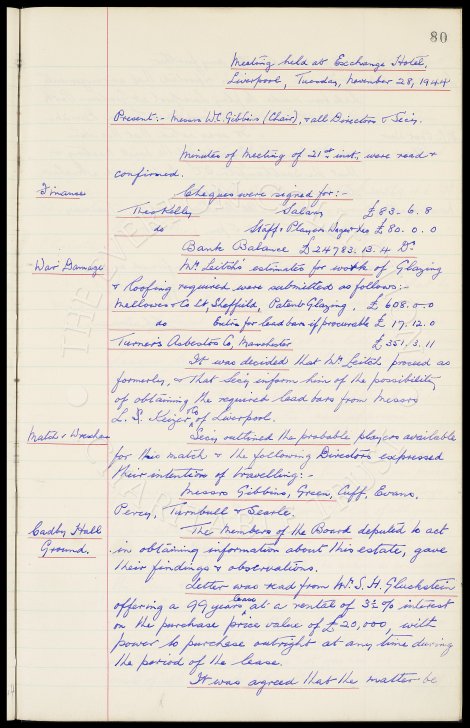 80
Meeting held at Exchange Hotel,
Liverpool, Tuesday, November 28, 1944
Present:- Messrs W.C. Gibbins (Chair), & all Directors & Secy.
Minutes of Meeting of 21st inst. were read &
confirmed.
Finance
Cheques were signed for:-
Theo Kelly Salary £83-6.8
do Staff & Players Wages £80.0.0
Bank Balance £24783.13.4 Dr
War Damage
Mr Leitch's estimates for work of Glazing
& Roofing required were submitted as follows:-
Mellowes & Co Lt, Sheffield, Patent Glazing, £608.0.0
do Extra for lead bars if procurable £17.12.0
Turner's Asbestos Co, Manchester £351.3.11
It was decided that Mr Leitch proceed as
formerly, & that Secy inform him of the possibility
of obtaining the required lead bars from Messrs
L. S. Keizer & Co of Liverpool.
Match v Wrexham
Secy outlined the probable players available
for this match & the following Directors expressed
their intention of travelling:-
Messrs Gibbins, Green, Cuff, Evans,
Percy, Turnbull & Searle.
Cadby Hall
Ground.
The Members of the Board deputed to act
in obtaining information about this estate, gave
their findings & observations.
Letter was read from Mr. S. H. Gluckstein
offering a 99 years lease, at a rental of 3½% interest
on the purchase price value of £20,000, with
power to purchase outright at any time during
the period of the lease.
It was agreed that the matter be